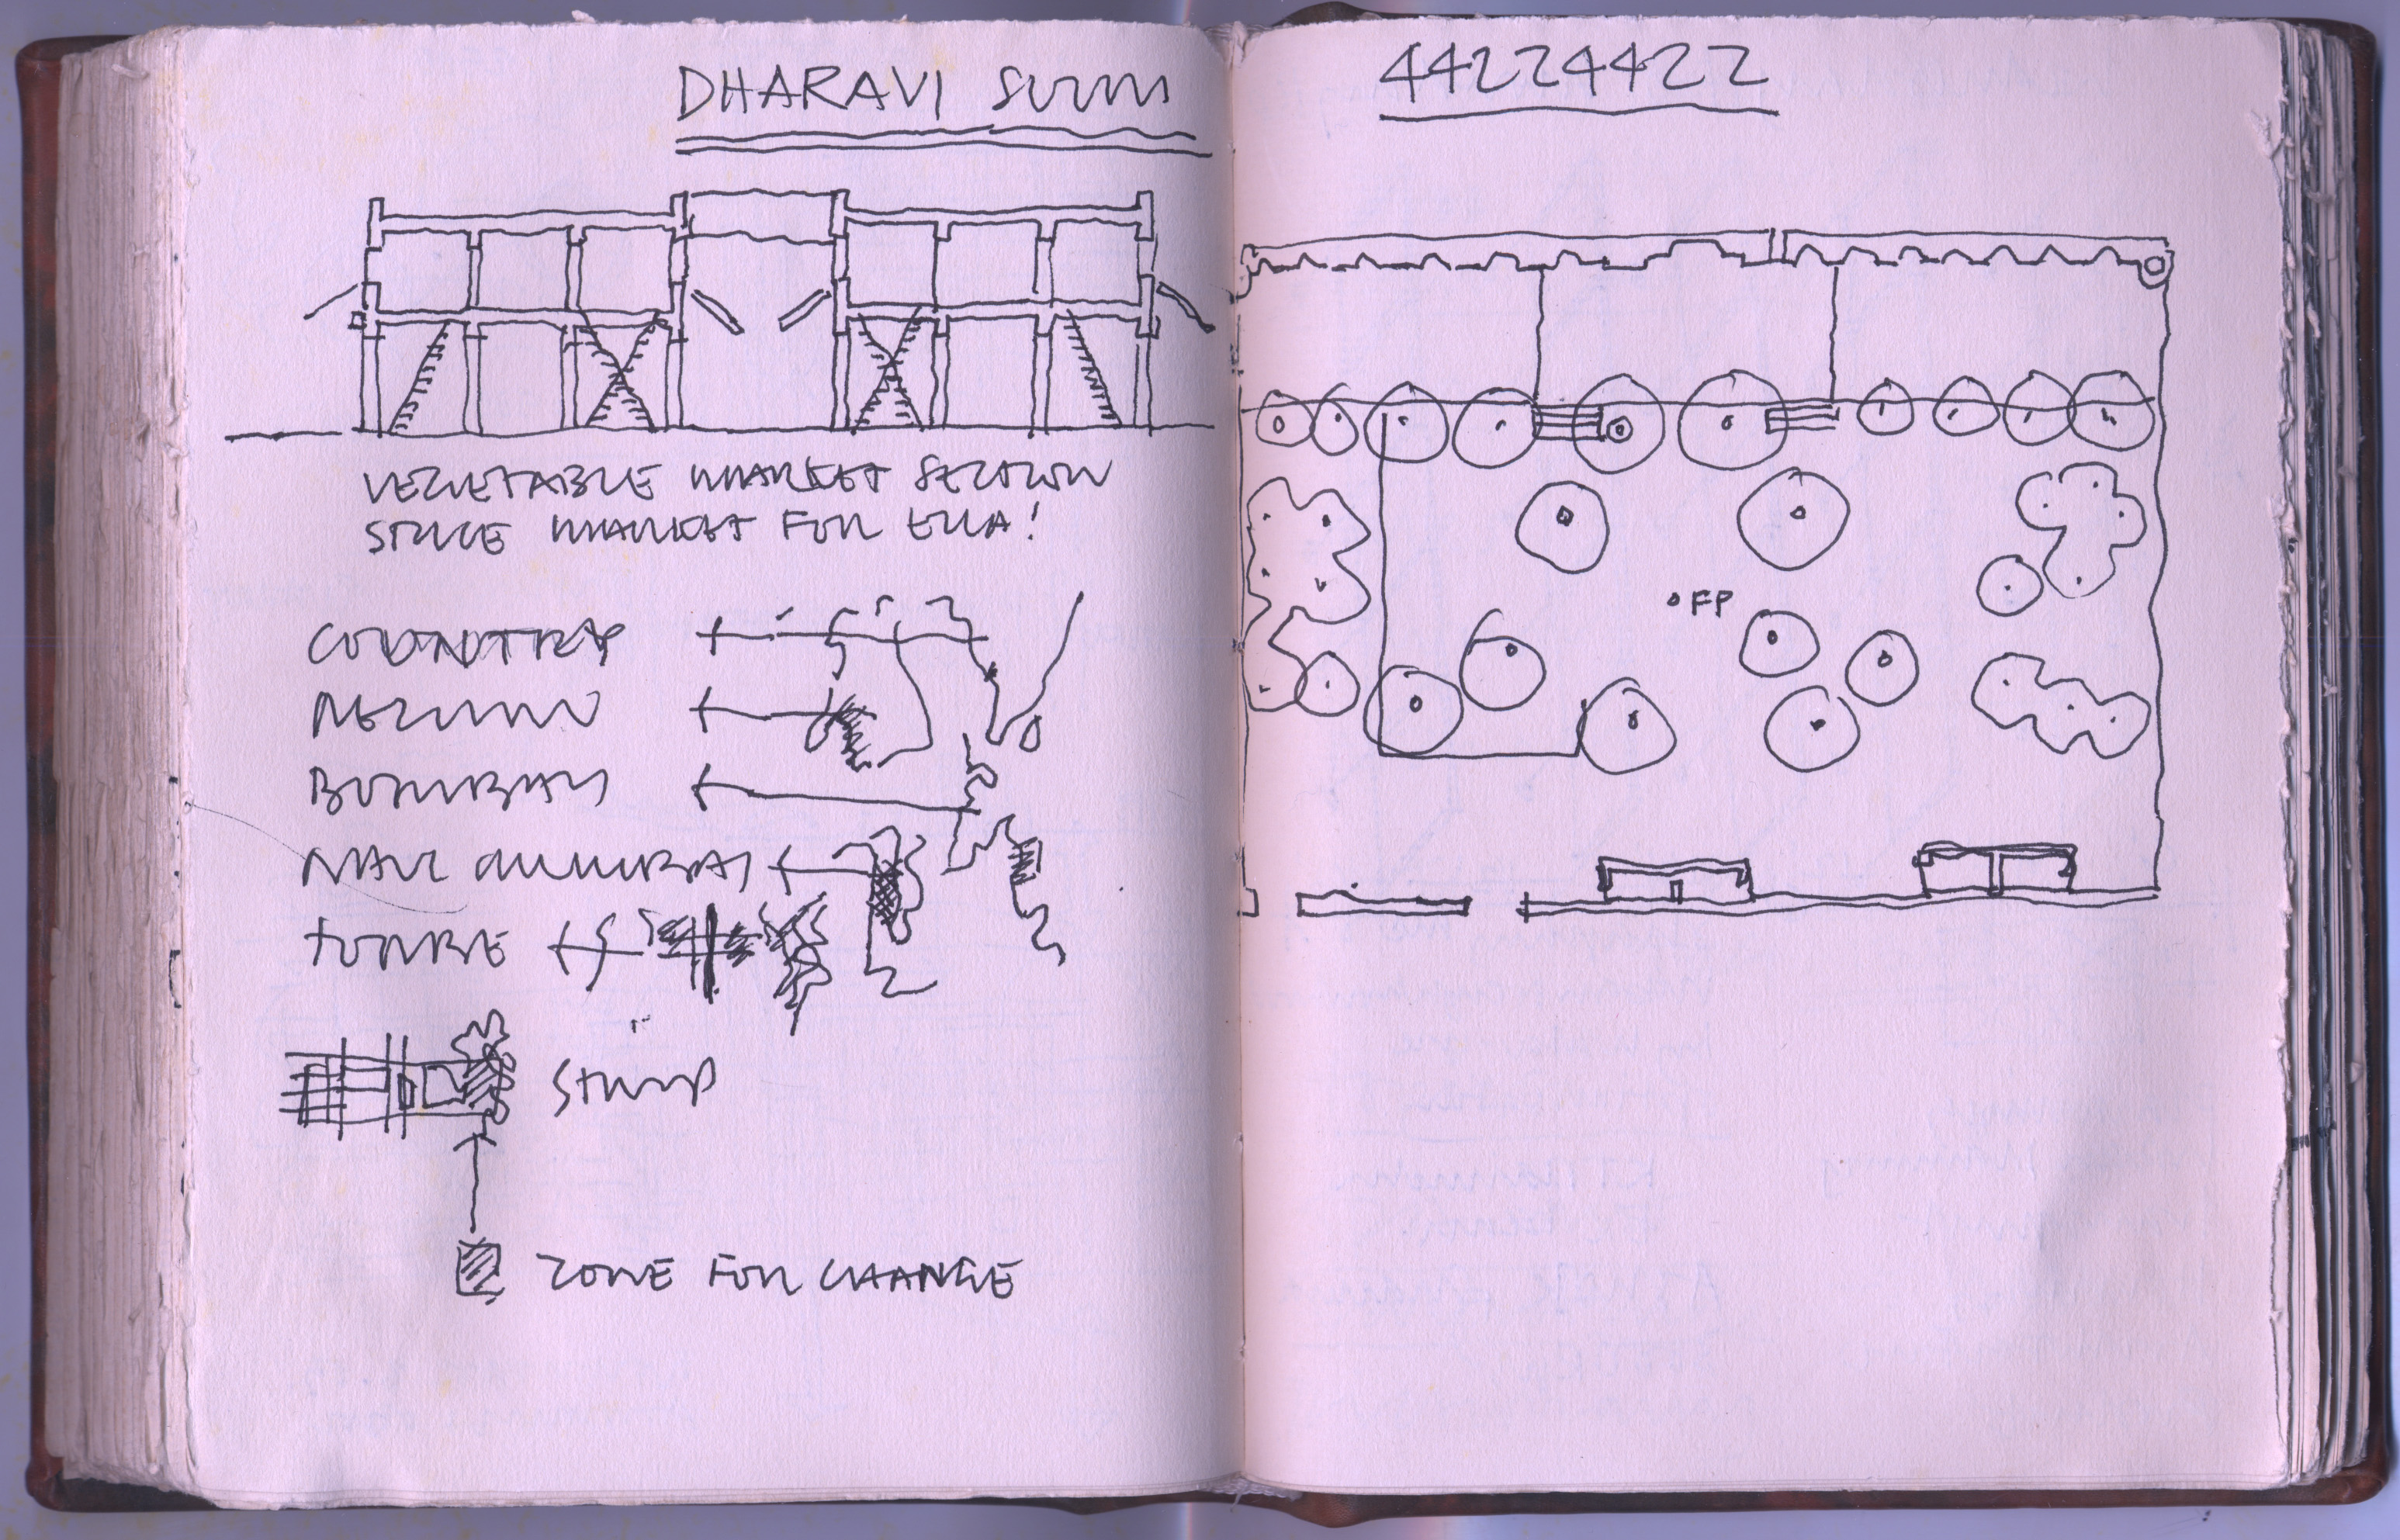 DHARAVI SLUM
VEGETABLE MARKET SECTION
SPICE MARKET FOR ELLA!
COUNTRY
REGION
BOMBAY
NAVI MUMBAI
STRIP
ZONE FOR CHANGE
44224422
FP